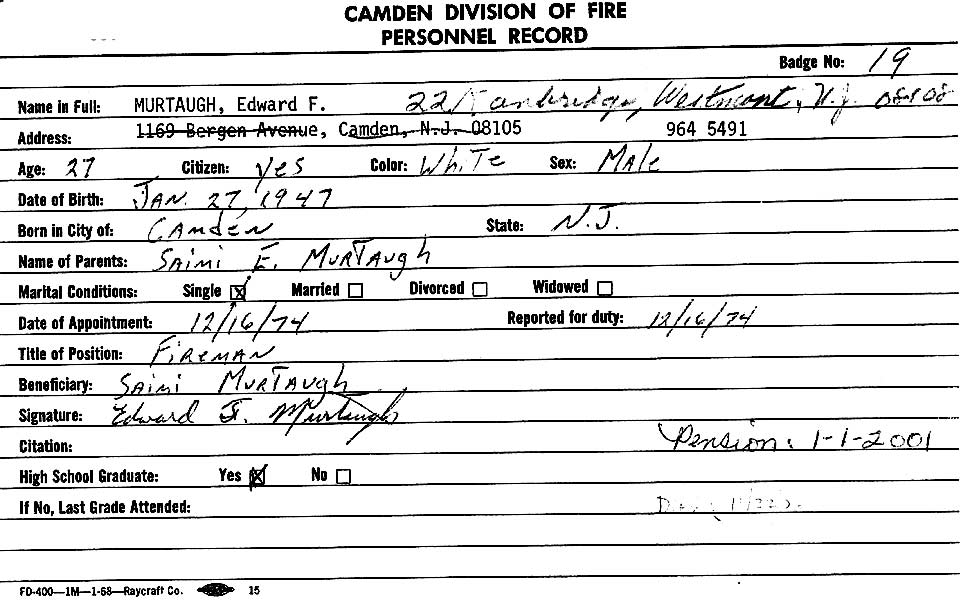 CAMDEN DIVISION OF FIRE
PERSONNEL RECORD
Badge No: 19
Name in Full: MURTAUGH, Edward F. 22 Westmont, N.J. 08108
Address: 1169 Bergen Avenue, Camden, N.J. 08105 964 5491
Age: 27 Citizen: yes Color: White Sex: Male
Date of Birth: JAN. 27, 1947
Born in City of: Camden State: N.J.
Name of Parents: Saimi E. Murtaugh
Marital Conditions: Single Married Divorced Widowed
Date of Appointment: 12/16/74 Reported for duty: 12/16/74
Title of Position: Fireman
Beneficiary: Saimi Murtaugh
Signature: Edward F. Murtaugh
Citation: Pension: 1-1-2001
High School Graduate: Yes No
If No, Last Grade Attended:
FD-400—1M—1-68—Raycraft Co. 15